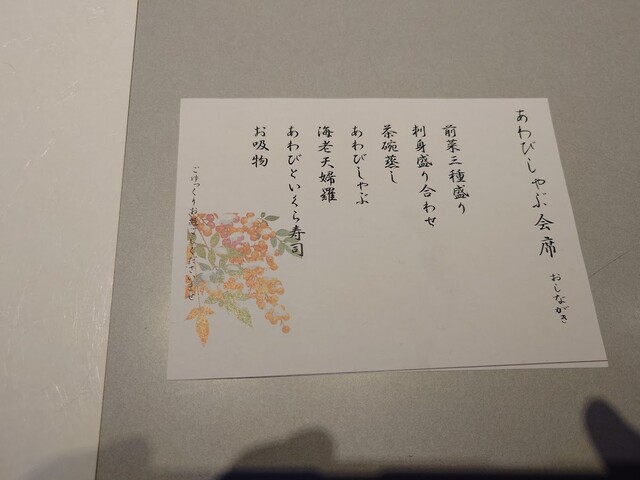 あわびしゃぶ会席 おしながき
前菜三種盛り
刺身盛り合わせ
茶碗蒸し
あわびしゃぶ
海老天婦羅
あわびといくら寿司
お吸物
ごゆっくりお過ごしくださいませ